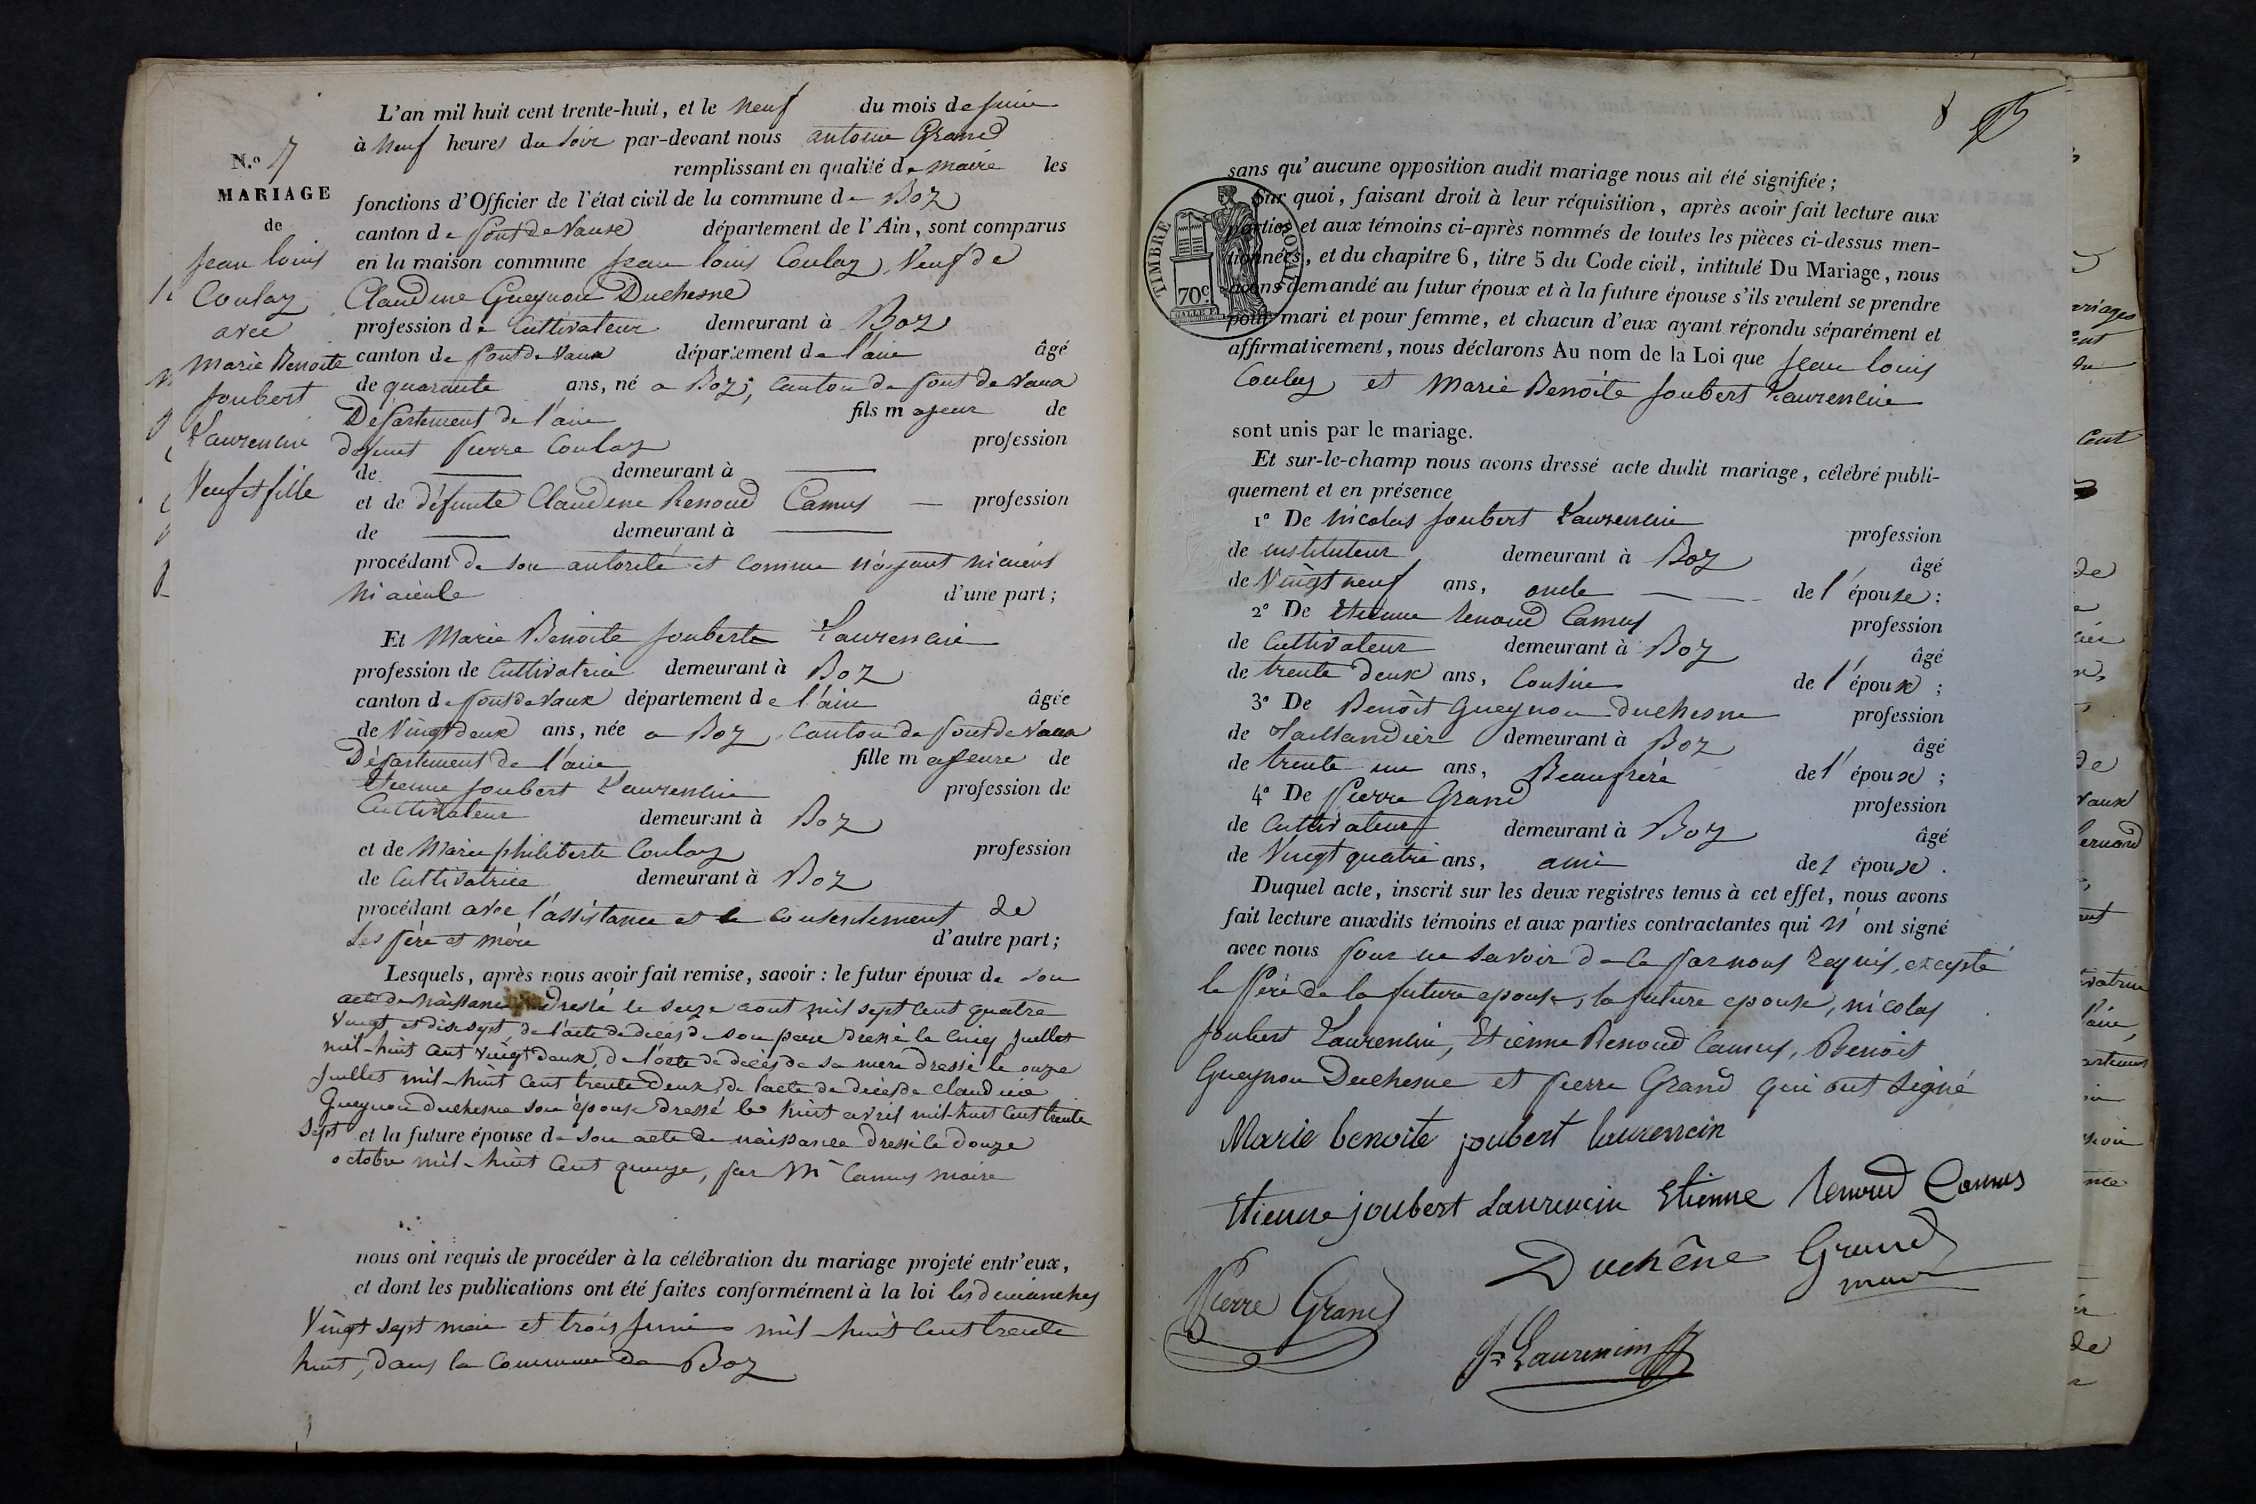 L'an mil huit cent trente-huit, et le neuf du mois de juin
à neuf heures du soir par-devant nous antoine Grand
remplissant en qualité de maire les
fonctions d'Officier de l'état civil de la commune de Boz
canton de Pont de Vaux département de l'Ain, sont comparus
en la maison commune Jean louis Coulaz, Veuf de
Claudine Gueynon Duchesne
profession de Cultivateur demeurant à Boz
canton de Pont de Vaux département de l'ain âgé
de quarante ans, né a Boz; canton de Pont de Vaux
Département de l'ain fils majeur de
defunt Pierre Coulaz profession
de demeurant à
et de défunte Claudine Renoud Camus profession
de demeurant à
procédant de son autorité et comme n'ayant ni aieuls
ni aieule d'une part;
Et Marie Benoite Jouberte Laurencin
profession de Cultivatrice demeurant à Boz
canton de Pont de Vaux département de l'ain âgée
de Vingt deux ans, née a Boz, Canton de Pont de Vaux
Département de l'ain fille majeure de
Etienne Joubert Laurencin profession de
Cultivateur demeurant à Boz
et de Marie philiberte Coulaz profession
de Cultivatrice demeurant à Boz
procédant avec l'assistance et le consentement de
ses père et mère d'autre part;
Lesquels, après nous avoir fait remise, savoir: le futur époux de son
acte de naissance dressé le seize aout mil sept cent quatre
vingt et dix sept, de l'acte de décès de son père dressé le cinq Juillet
mil-huit cent vingt deux, de l'acte de décès de sa mere dressé le onze
Juillet mil-huit cent trente deux, de l'acte de décès de Claudine
Gueynon duchesne son épouse dressé le huit avril mil huit cent trente
sept et la future épouse de son acte de naissance dressé le douze
octobre mil-huit cent quinze, par Mr Camus maire
nous ont requis de procéder à la célébration du mariage projeté entr'eux,
et dont les publications ont été faites conformément à la loi les dimanches
Vingt sept mai et trois Juin mil-huit cent trente
huit, dans la Commune de Boz
N.º 7
MARIAGE
de
Jean louis
Coulaz
avec
Marie Benoite
Joubert
Laurencin
Veuf et fille
8
sans qu'aucune opposition audit mariage nous ait été signifiée;
Sur quoi, faisant droit à leur réquisition, après avoir fait lecture aux
parties et aux témoins ci-après nommés de toutes les pièces ci-dessus men-
tionnées, et du chapitre 6, titre 5 du Code civil, intitulé Du Mariage, nous
avons demandé au futur époux et à la future épouse s'ils veulent se prendre
pour mari et pour femme, et chacun d'eux ayant répondu séparément et
affirmativement, nous déclarons Au nom de la Loi que Jean louis
Coulaz et Marie Benoite Joubert Laurencin
sont unis par le mariage.
Et sur-le-champ nous avons dressé acte dudit mariage, célébré publi-
quement et en présence
1º De nicolas Joubert Laurencin profession
de instituteur demeurant à Boz âgé
de Vingt neuf ans, oncle de l'épouse;
2º De Etienne Renoud Camus profession
de Cultivateur demeurant à Boz âgé
de trente deux ans, Cousin de l'époux;
3º De Benoit Gueynon duchesne profession
de Taillandier demeurant à Boz âgé
de trente un ans, Beaufrère de l'époux;
4º De Pierre Grand profession
de Cultivateur demeurant à Boz âgé
de Vingt quatre ans, ami de l'époux.
Duquel acte, inscrit sur les deux registres tenus à cet effet, nous avons
fait lecture auxdits témoins et aux parties contractantes qui n'ont signé
avec nous pour ne savoir de ce par nous requis, excepté
le Père de la future epouse, la future epouse, nicolas
Joubert Laurencin, Etienne Renoud Camus, Benoit
Gueynon Duchesne et Pierre Grand qui ont signé
Marie benoite joubert laurencin
Etienne joubert Laurencin Etienne Renoud Camus
Duchêne Grand
maire
Pierre Grand
Jt Laurencin
TIMBRE ROYAL
70c